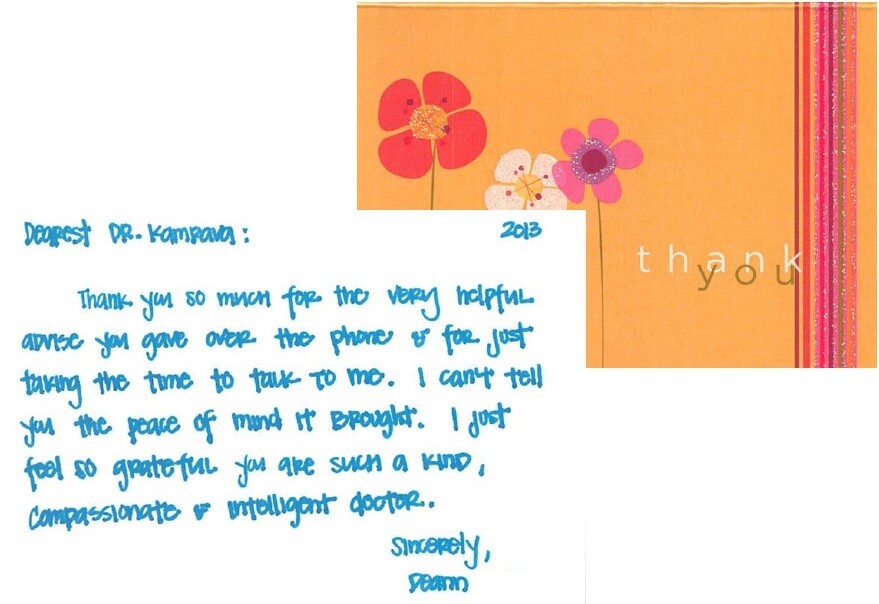 thank
you
Dearest Dr. Kamrava:
2013
Thank you so much for the very helpful
advise you gave over the phone & for just
taking the time to talk to me. I can't tell
you the peace of mind it brought. I just
feel so grateful you are such a kind,
compassionate & intelligent doctor.
Sincerely,
Deann